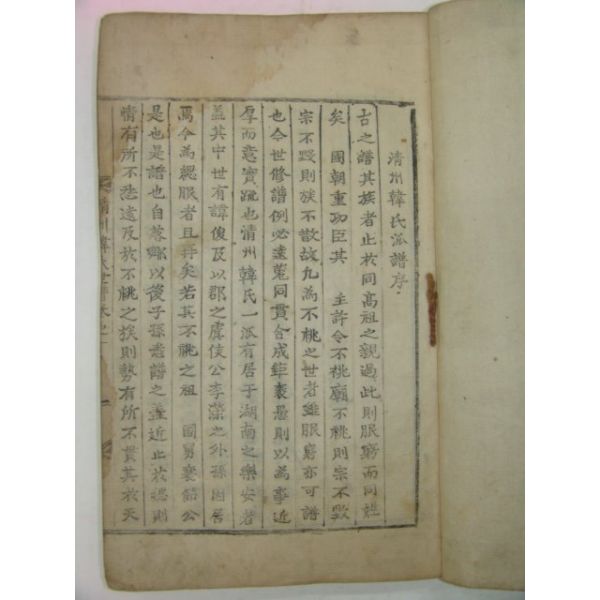 清州韓氏派譜序
古之譜其族者止於同高祖之親過此則服窮而同姓
矣 國朝重功臣其 主許令不祧廟不祧則宗不毀
宗不毀則族不散故凡為不祧之世者雖服窮亦可譜
也今世修譜例必遠蒐同貫合成鉅袠愚則以為事近
厚而意實疏也清州韓氏一派有居于湖南之樂安者
盖其中世有諱俊及以郡之虞侯公李藻之外孫因居
焉今為緦服者且再矣若其不祧之祖 國舅襄節公
是也是譜也自襄節以後子孫悉譜之盖近止於緦則
情有所不悉遠及於不祧之族則勢有所不貫其於天